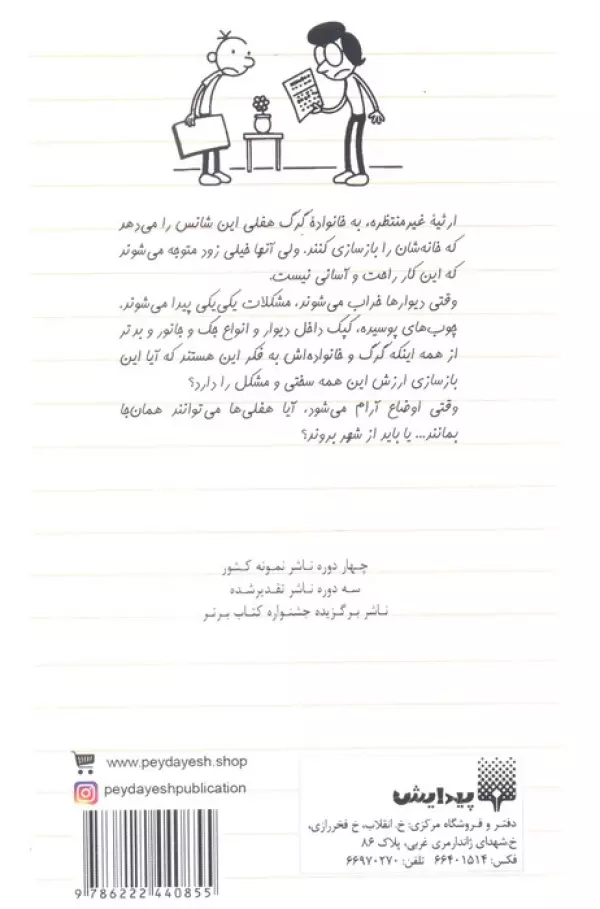 ارثیهٔ غیرمنتظره، به خانوادهٔ گرگ هفلی این شانس را می‌دهد
که خانه‌شان را بازسازی کنند. ولی آنها خیلی زود متوجه می‌شوند
که این کار راحت و آسانی نیست.
وقتی دیوارها خراب می‌شوند، مشکلات یکی‌یکی پیدا می‌شوند.
چوب‌های پوسیده، کپک داخل دیوار و انواع جک و جانور و بدتر
از همه اینکه گرگ و خانواده‌اش به فکر این هستند که آیا این
بازسازی ارزش این همه سختی و مشکل را دارد؟
وقتی اوضاع آرام می‌شود، آیا هفلی‌ها می‌توانند همان‌جا
بمانند... یا باید از شهر بروند؟
چهار دوره ناشر نمونه کشور
سه دوره ناشر تقدیرشده
ناشر برگزیده جشنواره کتاب برتر
www.peydayesh.shop
peydayeshpublication
9 786222 440855
پیدایش
دفتر و فروشگاه مرکزی: خ. انقلاب، خ فخررازی،
خ شهدای ژاندارمری غربی، پلاک ۸۶
فکس: ۶۶۴۰۱۵۱۴ تلفن: ۶۶۹۷۰۲۷۰